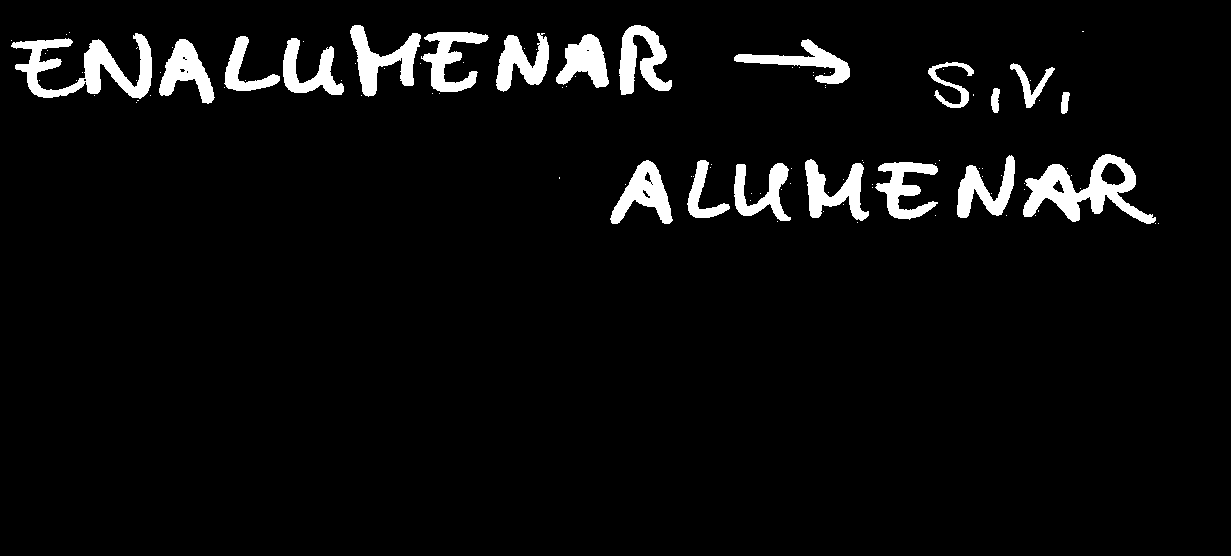 ENALUMENAR → s.v.
ALUMENAR